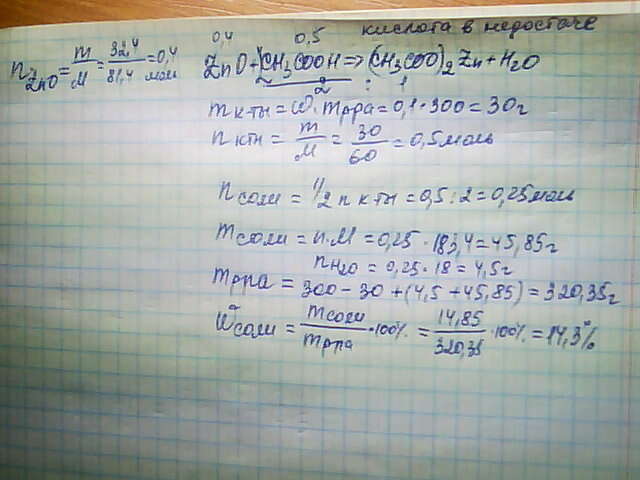 кислота в недостаче
0,4 0,5
n ZnO = m/M = 32,4/81,4 = 0,4 мол
ZnO + 2CH3COOH => (CH3COO)2Zn + H2O
2 : 1
m к-ты = ω · m р-ра = 0,1 · 300 = 30г
n ктн = m/M = 30/60 = 0,5 моль
n соли = 1/2 n к-ты = 0,5 : 2 = 0,25 моль
m соли = n · M = 0,25 · 183,4 = 45,85г
n H2O = 0,25 · 18 = 4,5г
m рра = 300 - 30 + (4,5 + 45,85) = 320,35г
W соли = m соли/m рра · 100% = 14,85/320,35 · 100% = 14,3%